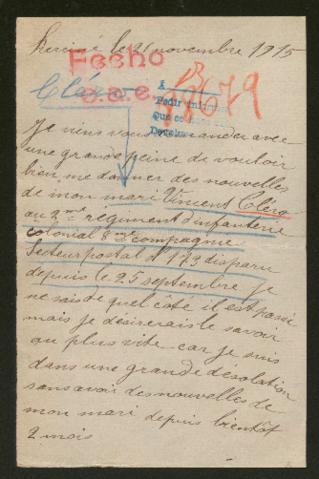 le 21 novembre 1915
Fecho
Cléro
A
Pedir
Que
Je viens vous demander avec
une grande peine de vouloir
bien me donner des nouvelles
de mon mari Vincent Cléro
au 2me régiment d'infanterie
colonial 8me compagnie
Secteur postal n° 173 disparu
depuis le 25 septembre je
ne sais de quel côté il est passé
mais je désirerais le savoir
au plus vite car je suis
dans une grande désolation
sans avoir des nouvelles de
mon mari depuis bientôt
2 mois